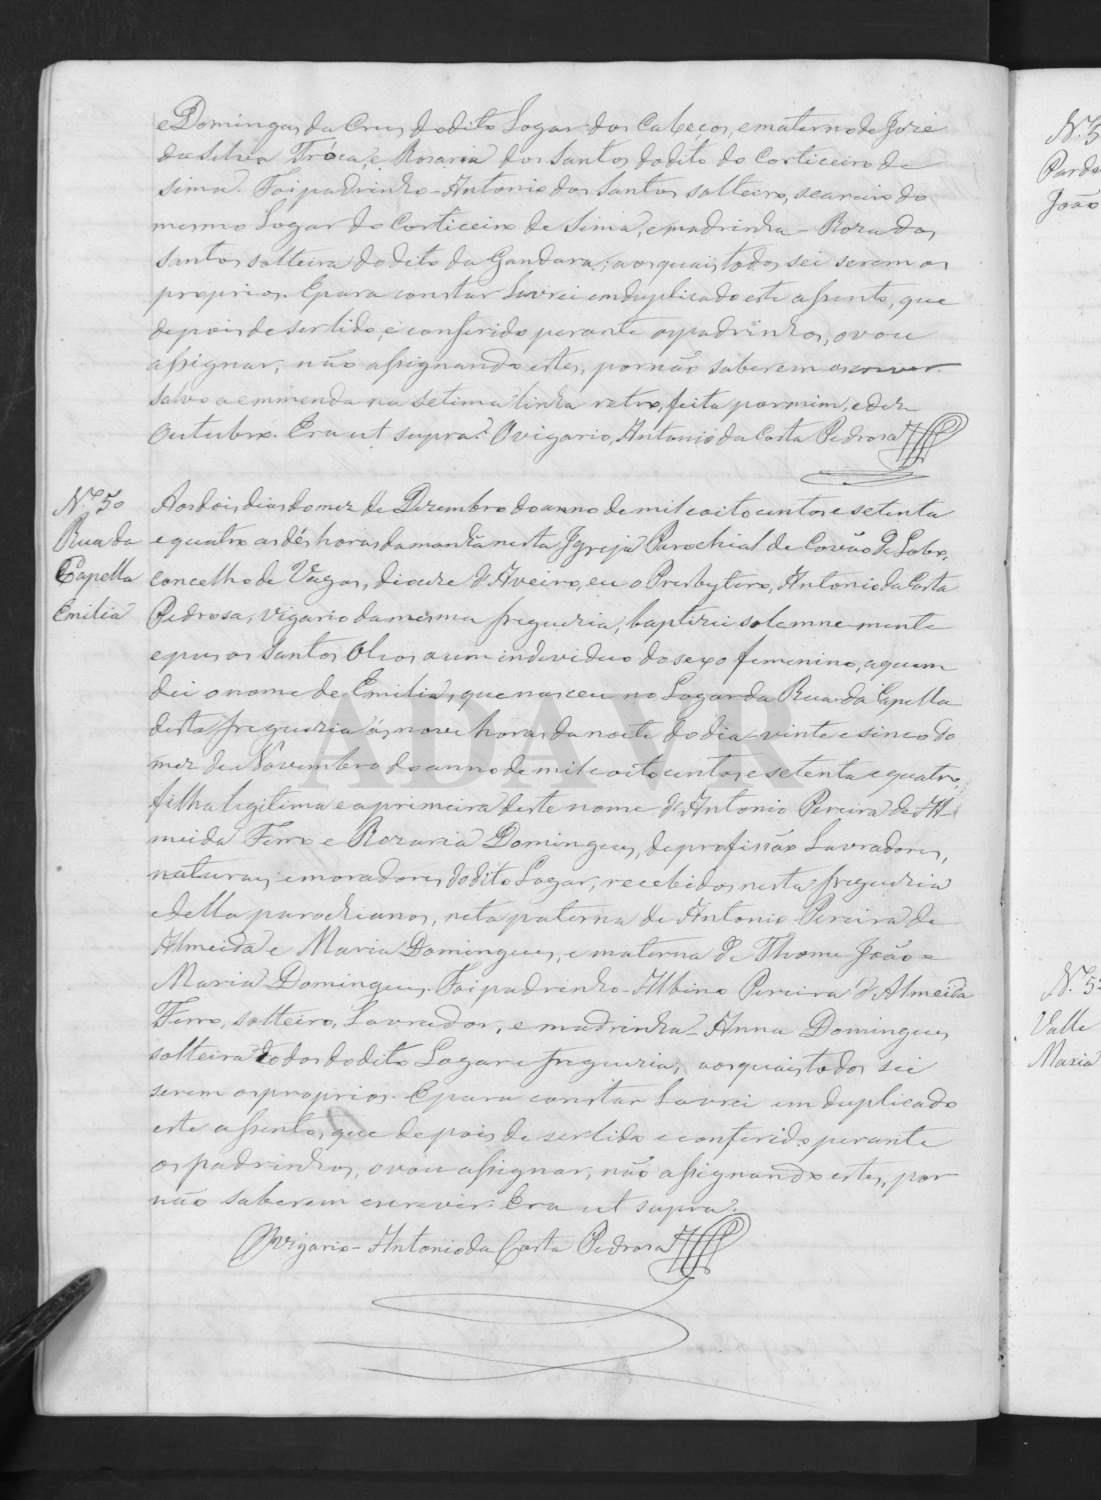 e Domingas da Cruz do dito Logar dos Cabeços, e materno de José
da Silva Tróca, e Rosaria dos Santos do dito do Corticeiro de
Sima. Foi padrinho - Antonio dos Santos solteiro, seareiro do
mesmo Logar do Corticeiro de Sima, e madrinha - Roza dos
Santos solteira do dito da Gandara; aos quais todos sei serem os
proprios. E para constar lavrei em duplicado este assento, que
depois de ser lido, e conferido perante os padrinhos, o vou
assignar, não assignando estes, por não saberem escrever.
Salvo a emmenda na setima linha retro, feita por mim, e diz
Outubro. Era ut supra. O vigario, Antonio da Costa Pedrosa
Nº 50
Rua da
Capella
Emilia
Aos dois dias do mez de Dezembro do anno de mil e oito centos e setenta
e quatro as dés horas da manhã nesta Igreja Parochial de Covão de Lobo,
concelho de Vagos, diocese d'Aveiro, eu o Presbytero, Antonio da Costa
Pedrosa, vigario da mesma freguezia, baptizei solemne-mente
e puz os Santos Oleos a um individuo do sexo femenino, a quem
dei o nome de Emilia, que nasceu no Logar da Rua da Capella
desta freguezia ás nove horas da noite do dia - vinte e sinco do
mez de Novembro do anno de mil e oito centos e setenta e quatro,
filha legitima e a primeira deste nome de Antonio Pereira de Al-
meida Ferro e Rozaria Domingues, de profissão Lavradores,
naturaes e moradores do dito Logar, recebidos nesta freguezia
e della parochianos, neta paterna de Antonio Pereira de
Almeida e Maria Domingues, e materna de Thome João e
Maria Domingues. Foi padrinho - Albino Pereira d'Almeida
Ferro, solteiro, Lavrador, e madrinha - Anna Domingues
solteira todos do dito Logar e freguezia, aos quais todos sei
serem os proprios. E para constar lavrei em duplicado
este assento, que depois de ser lido e conferido perante
os padrinhos, o vou assignar, não assignando estes, por
não saberem escrever. Era ut supra.
O vigario - Antonio da Costa Pedrosa
ADAVR
Nº 5
Parda
João
Nº 5
Valle
Maria